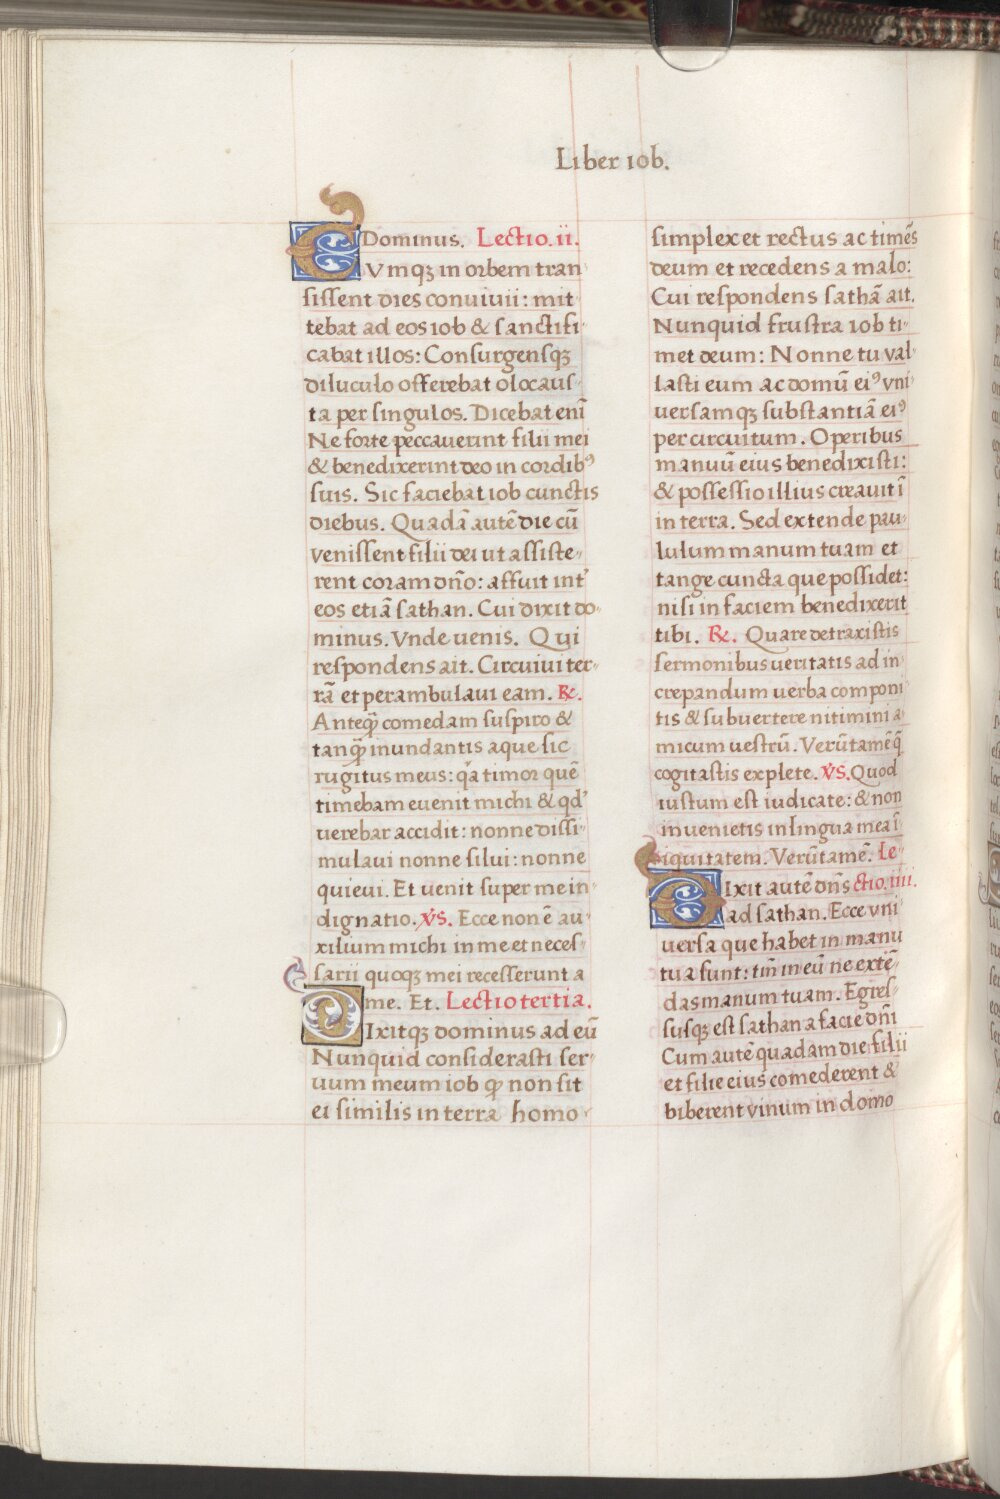 Liber iob.
Dominus. Lectio. ii.
CVmqꝫ in orbem tran
sissent dies conuiuii: mit
tebat ad eos iob & sanctifi
cabat illos: Consurgensqꝫ
diluculo offerebat olocaus
ta per singulos. Dicebat enī
Ne forte peccauerint filii mei
& benedixerint deo in cordibꝰ
suis. Sic faciebat iob cunctis
diebus. Quadā autē die cū
venissent filii dei ut assiste
rent coram dño: affuit int᾽
eos etiā sathan. Cui dixit do
minus. Vnde uenis. Qui
respondens ait. Circuiui ter
rā et perambulaui eam. ℞.
Anteꝙ̄ comedam suspiro &
tanꝙ̄ inundantis aque sic
rugitus meus: qa timor quē
timebam euenit michi & qd᾽
uerebar accidit: nonne dissi
mulaui nonne silui: nonne
quieui. Et uenit super me in
dignatio. VS. Ecce non ē au
xilium michi in me et neces
sarii quoqꝫ mei recesserunt a
me. Et. Lectio tertia.
DIxitqꝫ dominus ad eū
Nunquid considerasti ser
uum meum iob ꝙ non sit
ei similis in terra homo
simplex et rectus ac timēs
deum et recedens a malo:
Cui respondens sathā ait.
Nunquid frustra iob ti
met deum: Nonne tu val
lasti eum ac domū eiꝰ vni
uersamqꝫ substantiā eiꝰ
per circuitum. Operibus
manuū eius benedixisti:
& possessio illius creauit ī
in terra. Sed extende pau
lulum manum tuam et
tange cuncta que possidet:
nisi in faciem benedixerit
tibi. ℞. Quare detraxistis
sermonibus ueritatis ad in
crepandum uerba componi
tis & subuertere nitimini a
micum uestrū. Verūtamē q̄
cogitastis explete. VS. Quod
iustum est iudicate: & non
inuenietis in lingua mea ī
iquitatem. Verūtamē. Le
DIxit autē dñs ctio. iiii.
ad sathan. Ecce vni
uersa que habet in manu
tua sunt: tm̄ in eū ne extē
das manum tuam. Egres
susqꝫ est sathan a facie dñi
Cum autē quadam die filii
et filie eius comederent &
biberent vinum in domo